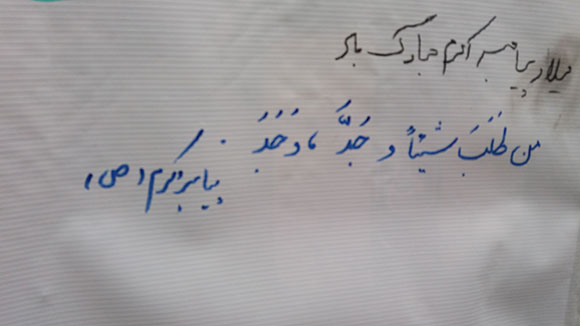 میلاد پیامبر اکرم مبارک باد
من طَلَبَ شیئاً و جَدَّ ، وَجَدَ .
پیامبر اکرم (ص)